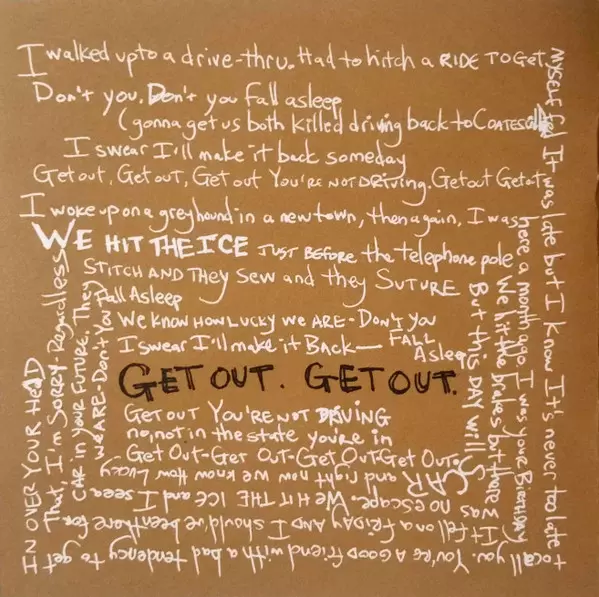 I walked up to a drive-thru. Had to hitch a RIDE TO Get
myself fed It was late but I know It's never too late
to call you. You're A GOOD friend with a bad tendency to get
IN OVER YOUR HEAD
Don't you. Don't you fall asleep
(gonna get us both killed driving back to COATESVILLE
I swear I'll make it back someday
Get out, Get out, Get out You're NOT DRIVING. Get out Get out
I woke up on a greyhound in a new town, then again, I was
here a month ago. I was your BIRTHDAY
It fell on a FRIDAY AND I should've been there for
That, I'm SORRY. Regardless
WE HIT THE ICE JUST BEFORE the telephone pole
We hit the brakes but there was
no escape. We HIT THE ICE and I seen
CAR in YOUR FUTURE. They
STITCH AND They SEW and they SUTURE
But this DAY will SCAR
and right now we know How LUCKY
we ARE-Don't You
Fall Asleep
We know HOW LUCKY we ARE-Don't you
FALL
Asleep
I swear I'll make it Back—
GET OUT. GET OUT.
GET OUT You're NOT DRIVING
no, not in the state you're in
Get Out-Get Out-Get Out-Get Out